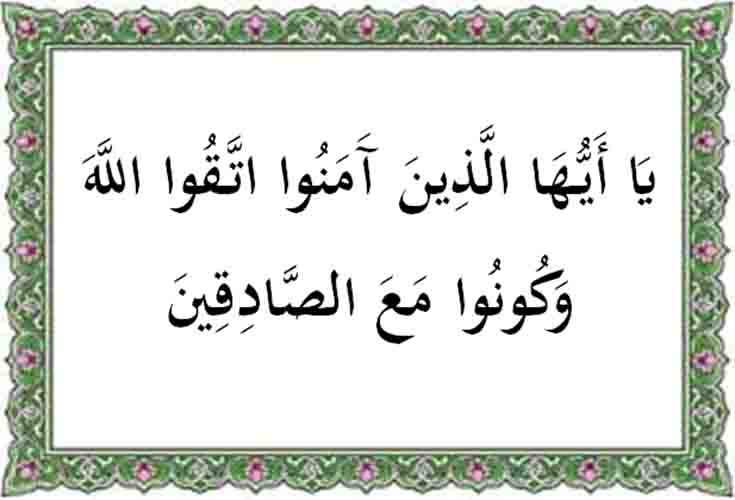 يَا أَيُّهَا الَّذِينَ آَمَنُوا اتَّقُوا اللَّهَ
وَكُونُوا مَعَ الصَّادِقِينَ